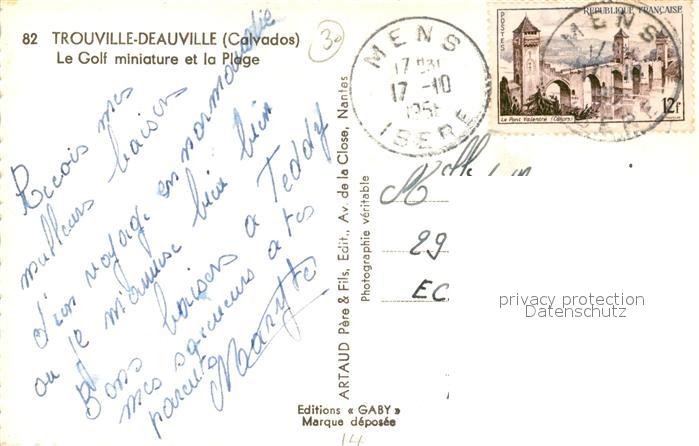 82 TROUVILLE-DEAUVILLE (Calvados)
Le Golf miniature et la Plage
30
MENS
17 H 31
17 -10
195
ISERE
RÉPUBLIQUE FRANÇAISE
POSTES
Le Pont Valentré (Cahors)
12f
MENS
ISERE
Recois mes
meilleurs baisers
d'un voyage en normandie
ou je m'amuse bien bien
Bons baisers a Teddy
mes a tes
parents
ARTAUD Père & Fils, Edit., Av. de la Close, Nantes
Photographie véritable
29
EC
privacy protection
Datenschutz
Editions « GABY »
Marque déposée
14